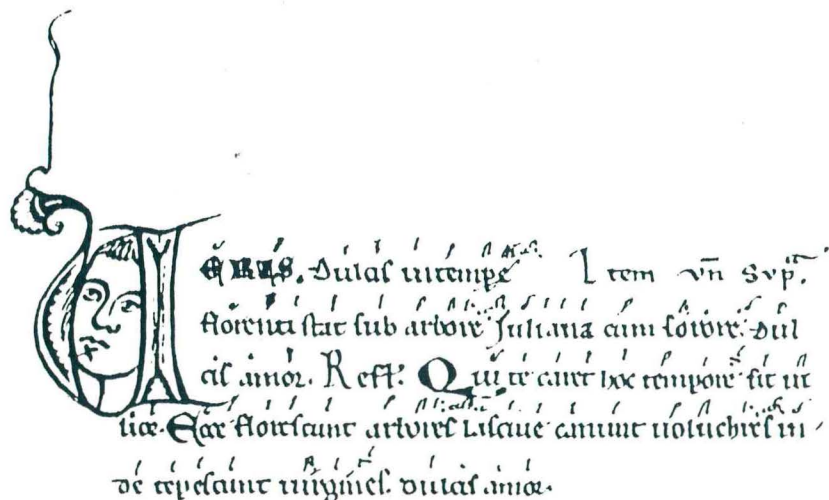 VERIS. dulcis in tempore Item vn Sup.
florenti stat sub arbore Juliana cum sorore. Dul
cis amor. Reff. Qui te caret hoc tempore fit ui
lior. Ecce florescunt arbores Lasciue canunt uolucres in
de tepescunt uirgines. dulcis amor.